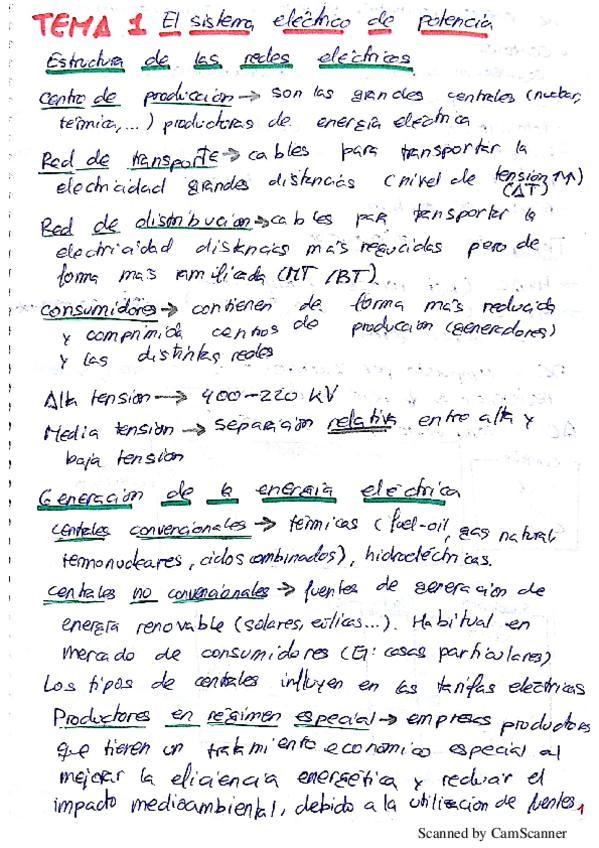 TEMA 1 El sistema eléctrico de potencia
Estructura de las redes eléctricas
Centro de producción → son las grandes centrales (nuclear,
térmica,...) productoras de energía eléctrica.
Red de transporte → cables para transportar la
electricidad grandes distancias (nivel de tensión ↑↑)
(AT)
Red de distribución → cables para transportar la
electricidad distancias más reducidas pero de
forma más ramificada (MT/BT).
Consumidores → contienen de forma más reducida
y comprimida centros de producción (generadores)
y las distintas redes
Alta tensión → 400-220 kV
Media tensión → separación relativa entre alta y
baja tensión
Generación de la energía eléctrica
Centrales convencionales → térmicas (fuel-oil, gas natural
termonucleares, ciclos combinados), hidroeléctricas.
Centrales no convencionales → fuentes de generación de
energía renovable (solares, eólicas...). Habitual en
mercado de consumidores (Ej: casas particulares)
Los tipos de centrales influyen en las tarifas eléctricas
Productores en régimen especial → empresas productoras
que tienen un tratamiento económico especial al
mejorar la eficiencia energética y reducir el
impacto medioambiental, debido a la utilización de fuentes
1
Scanned by CamScanner